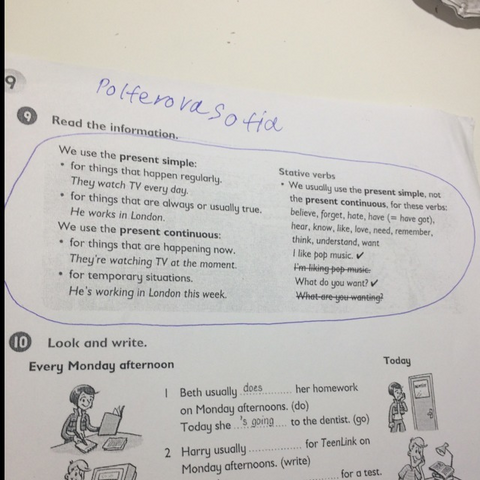 9
Polferova Sofia
9 Read the information.
We use the present simple:
• for things that happen regularly.
They watch TV every day.
• for things that are always or usually true.
He works in London.
We use the present continuous:
• for things that are happening now.
They're watching TV at the moment.
• for temporary situations.
He's working in London this week.
Stative verbs
• We usually use the present simple, not
the present continuous, for these verbs:
believe, forget, hate, have (= have got),
hear, know, like, love, need, remember,
think, understand, want
I like pop music. ✓
I'm liking pop music.
What do you want? ✓
What are you wanting?
10 Look and write.
Every Monday afternoon
Today
1 Beth usually does her homework
on Monday afternoons. (do)
Today she 's going to the dentist. (go)
2 Harry usually .............. for TeenLink on
Monday afternoons. (write)
.............. for a test.